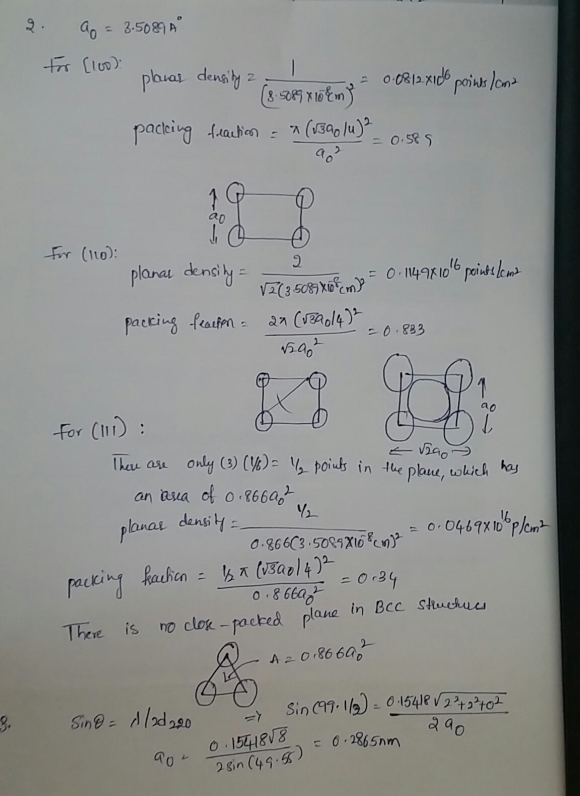 2. a₀ = 3.5089 A°
For (100):
planar density = 1 / (3.5089 × 10⁻⁸ cm)² = 0.0812 × 10¹⁶ points/cm²
packing fraction = π (√3a₀/4)² / a₀² = 0.589
a₀
For (110):
planar density = 2 / √2(3.5089 × 10⁻⁸ cm)² = 0.1149 × 10¹⁶ points/cm²
packing fraction = 2π (√3a₀/4)² / √2a₀² = 0.833
a₀
√2a₀
For (111) :
There are only (3) (1/6) = 1/2 points in the plane, which has
an area of 0.866a₀²
planar density = 1/2 / 0.866(3.5089 × 10⁻⁸ cm)² = 0.0469 × 10¹⁶ p/cm²
packing fraction = 1/2 π (√3a₀/4)² / 0.866a₀² = 0.34
There is no close-packed plane in BCC structures
A = 0.866a₀²
3. Sinθ = λ/2d₂₂₀ ⇒ Sin(99.1/2) = 0.15418 √2²+2²+0² / 2a₀
a₀ = 0.15418√8 / 2sin(49.55) = 0.2865nm